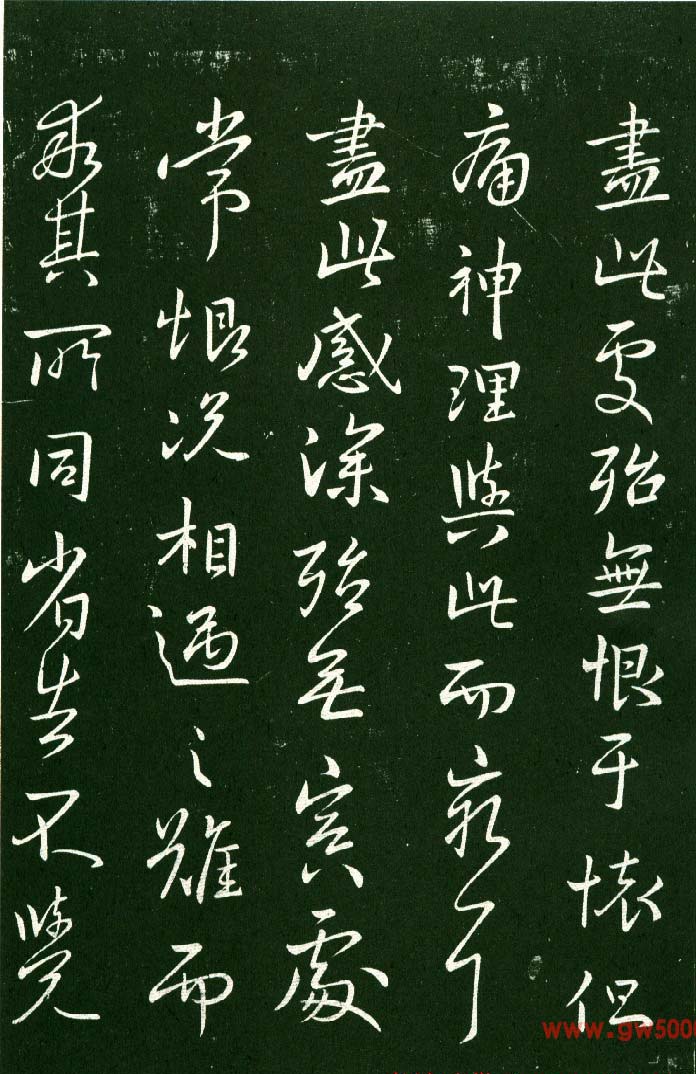 盡此處殆無恨于懷但
痛神理與此而窮耳
盡此感深殆無冥處
常恨況相遇之難而
乖其所同省告不覺
www.gw500